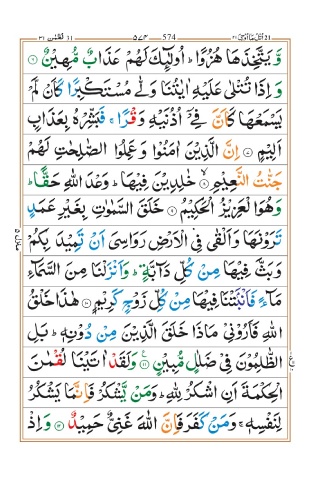 ٢١ اتل ما اوحی ٥٧٤ 574 لقمٰن ٣١
وَّ يَتَّخِذَهَا هُزُوًا ؕ اُولٰٓئِكَ لَهُمْ عَذَابٌ مُّهِيْنٌ ۝٦
وَ اِذَا تُتْلٰى عَلَيْهِ اٰيٰتُنَا وَلّٰى مُسْتَكْبِرًا كَاَنْ لَّمْ
يَسْمَعْهَا كَاَنَّ فِيْۤ اُذُنَيْهِ وَقْرًا ۚ فَبَشِّرْهُ بِعَذَابٍ
اَلِيْمٍ ۝٧ اِنَّ الَّذِيْنَ اٰمَنُوْا وَ عَمِلُوا الصّٰلِحٰتِ لَهُمْ
جَنّٰتُ النَّعِيْمِ ۝٨ۙ خٰلِدِيْنَ فِيْهَا ؕ وَعْدَ اللّٰهِ حَقًّا ؕ
وَ هُوَ الْعَزِيْزُ الْحَكِيْمُ ۝٩ خَلَقَ السَّمٰوٰتِ بِغَيْرِ عَمَدٍ
تَرَوْنَهَا وَ اَلْقٰى فِي الْاَرْضِ رَوَاسِيَ اَنْ تَمِيْدَ بِكُمْ
وَ بَثَّ فِيْهَا مِنْ كُلِّ دَآبَّةٍ ؕ وَ اَنْزَلْنَا مِنَ السَّمَآءِ
مَآءً فَاَنْۢبَتْنَا فِيْهَا مِنْ كُلِّ زَوْجٍ كَرِيْمٍ ۝١٠ هٰذَا خَلْقُ
اللّٰهِ فَاَرُوْنِيْ مَاذَا خَلَقَ الَّذِيْنَ مِنْ دُوْنِهٖ ؕ بَلِ
الظّٰلِمُوْنَ فِيْ ضَلٰلٍ مُّبِيْنٍ ۝١١ وَ لَقَدْ اٰتَيْنَا لُقْمٰنَ
الْحِكْمَةَ اَنِ اشْكُرْ لِلّٰهِ ؕ وَ مَنْ يَّشْكُرْ فَاِنَّمَا يَشْكُرُ
لِنَفْسِهٖ ۚ وَ مَنْ كَفَرَ فَاِنَّ اللّٰهَ غَنِيٌّ حَمِيْدٌ ۝١٢ وَ اِذْ